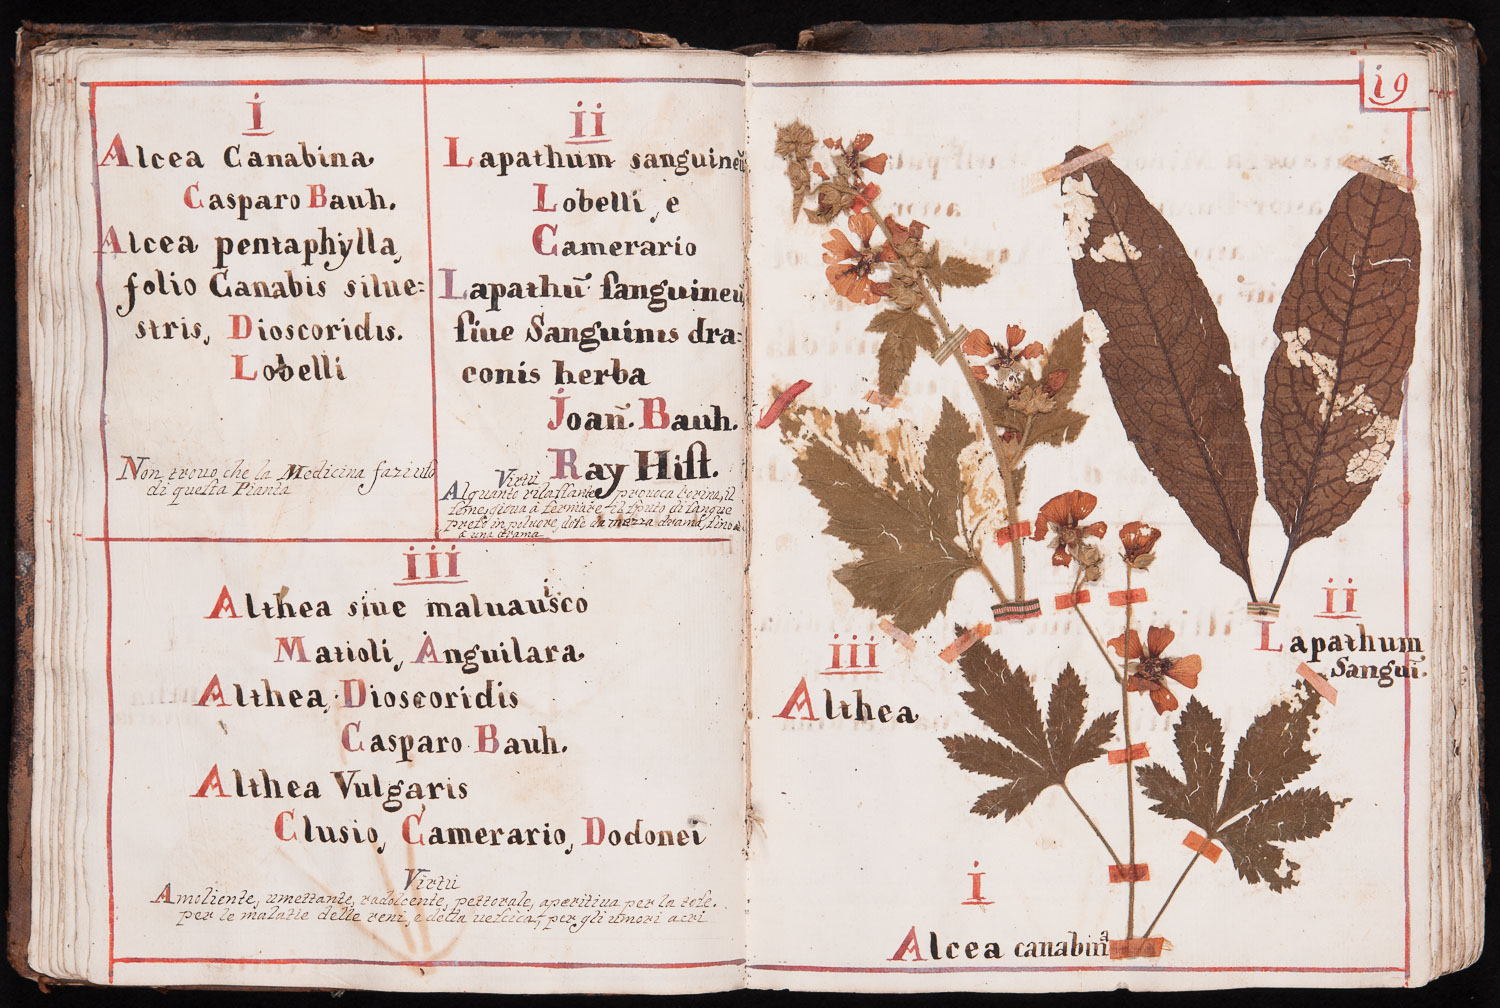 i
Alcea Canabina
Casparo Bauh.
Alcea pentaphylla,
folio Canabis silue=
stris, Dioscoridis.
Lobelli
Non trouo, che la Medicina fazi uso
di questa Pianta
ii
Lapathum sanguineũ
Lobelli, e
Camerario
Lapathũ sanguineũ,
siue Sanguinis dra=
conis herba
Joañ. Bauh.
Ray Hist.
Virtù
Alquanto rilassante, prouoca l'orina, il
gioua à fermare il sputo di sangue
preso in poluere, dose da mezza drama, sino à
à una drama
iii
Althea siue maluauisco
Matioli, Anguilara
Althea, Dioscoridis
Casparo Bauh.
Althea Vulgaris
Clusio, Camerario, Dodonei
Virtù
Amoliente, umettante, radolcente, pettorale, aperitiua per la tose,
per le malatie delle reni, e della uescica, per gli umori acri
i9
ii
Lapathum
Sangui.
iii
Althea
i
Alcea canabina